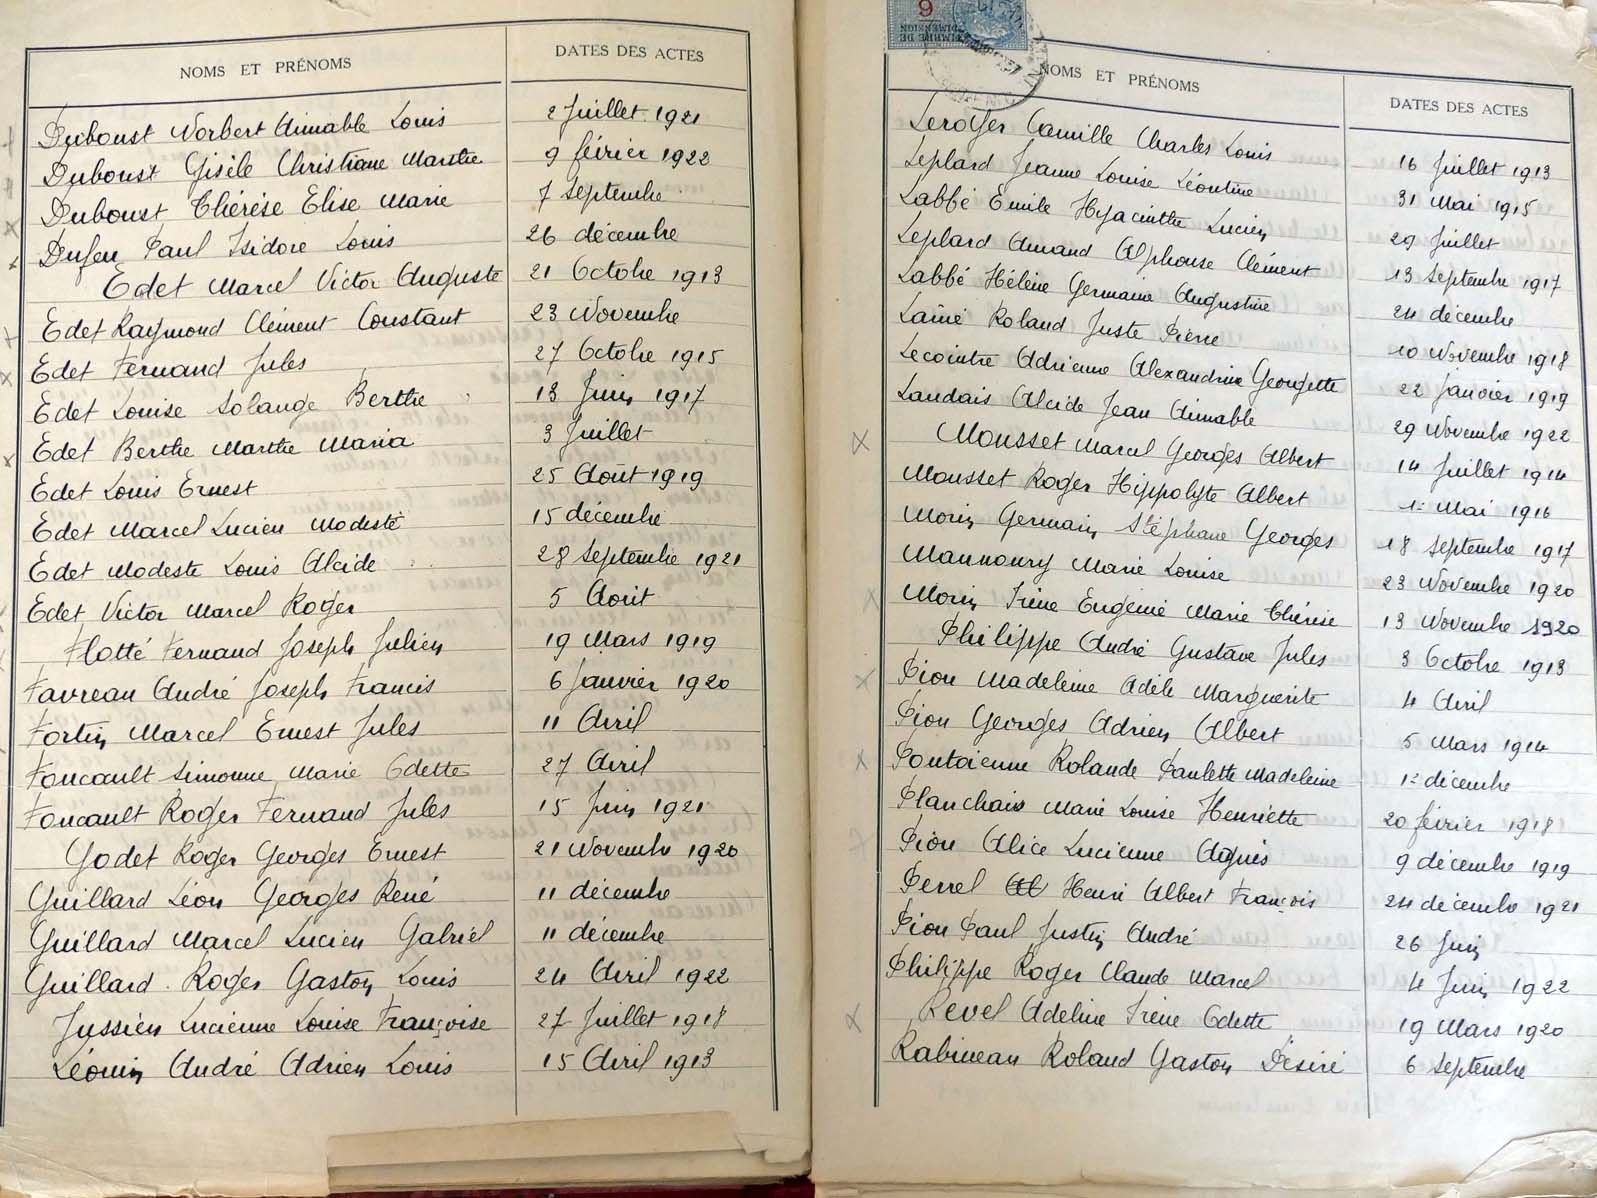 NOMS ET PRÉNOMS DATES DES ACTES
Duboust Norbert Aimable Louis 2 Juillet 1921
Duboust Gisèle Christiane Marthe 9 février 1922
Duboust Thérèse Elise Marie 7 septembre
Dufeu Paul Isidore Louis 26 décembre
Edet Marcel Victor Auguste 21 Octobre 1913
Edet Raymond Clément Constant 23 Novembre
Edet Fernand Jules 27 Octobre 1915
Edet Louise Solange Berthe 13 Juin 1917
Edet Berthe Marthe Maria 3 Juillet
Edet Louis Ernest 25 Août 1919
Edet Marcel Lucien Modeste 15 décembre
Edet Modeste Louis Alcide 28 septembre 1921
Edet Victor Marcel Roger 5 Août
Flotté Fernand Joseph Julien 19 Mars 1919
Favreau André Joseph Francis 6 Janvier 1920
Fortin Marcel Ernest Jules 11 Avril
Foucault Simonne Marie Odette 27 Avril
Foucault Roger Fernand Jules 15 Juin 1921
Godet Roger Georges Ernest 21 Novembre 1920
Guillard Léon Georges René 11 décembre
Guillard Marcel Lucien Gabriel 11 décembre
Guillard Roger Gaston Louis 24 Avril 1922
Jussien Lucienne Louise Françoise 27 Juillet 1918
Léonin André Adrien Louis 15 Avril 1913
9
TIMBRE DE
DIMENSION
NOMS ET PRÉNOMS DATES DES ACTES
Leroyer Camille Charles Louis 16 Juillet 1913
Leplard Jeanne Louise Léontine 31 Mai 1915
Labbé Emile Hyacinthe Lucien 29 Juillet
Leplard Amand Alphonse Clément 13 septembre 1917
Labbé Hélène Germaine Augustine 24 décembre
Lainé Roland Juste Pierre 10 Novembre 1918
Lecointre Adrienne Alexandrine Georgette 22 Janvier 1919
Landais Alcide Jean Aimable 29 Novembre 1922
Mousset Marcel Georges Albert 14 Juillet 1914
Mousset Roger Hippolyte Albert 1er Mai 1916
Morin Germain Stéphane Georges 18 septembre 1917
Mannoury Marie Louise 23 Novembre 1920
Morin Irène Eugénie Marie Thérèse 13 Novembre 1920
Philippe André Gustave Jules 3 Octobre 1913
Pion Madeleine Adèle Marguerite 4 Avril
Pion Georges Adrien Albert 5 Mars 1914
Pontoienne Rolande Paulette Madeleine 1er décembre
Planchais Marie Louise Henriette 20 février 1918
Pion Alice Lucienne Agnès 9 décembre 1919
Perrel Henri Albert François 24 décembre 1921
Pion Paul Justin André 26 Juin
Philippe Roger Claude Marcel 4 Juin 1922
Revel Adeline Irène Odette 19 Mars 1920
Rabineau Roland Gaston Désiré 6 septembre